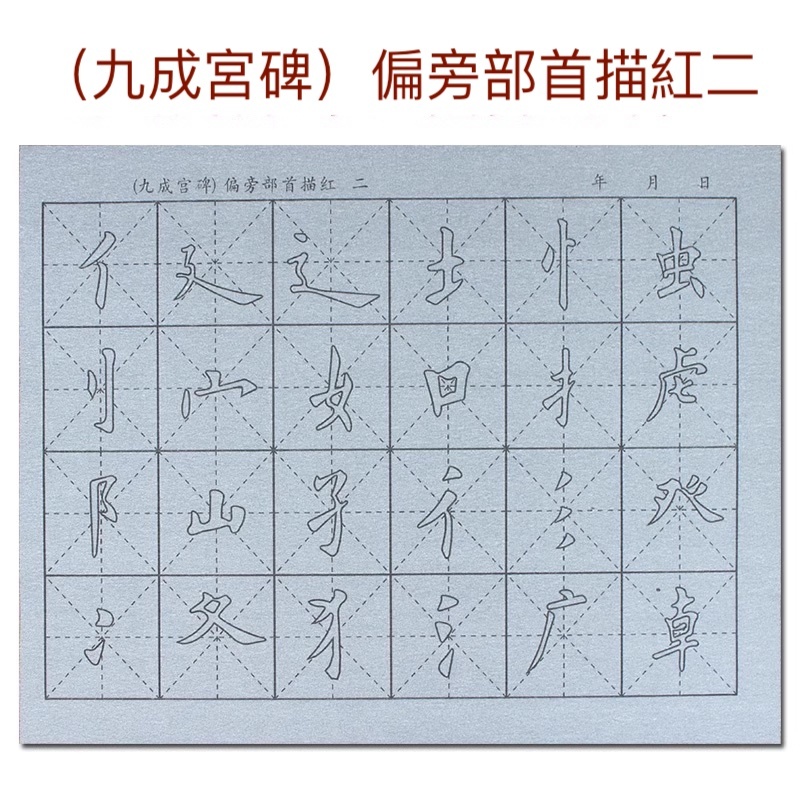 （九成宮碑）偏旁部首描紅二
（九成宫碑）偏旁部首描红 二 年 月 日
亻 廴 辶 土 忄 虫
刂 宀 女 囗 扌 虍
阝 山 孑 彳 氵 癶
冫 夂 犭 讠 广